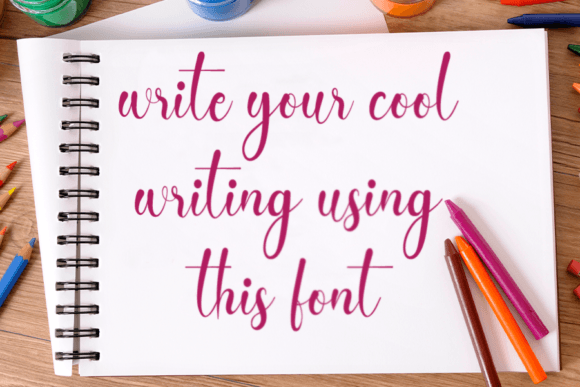 write your cool
writing using
this font